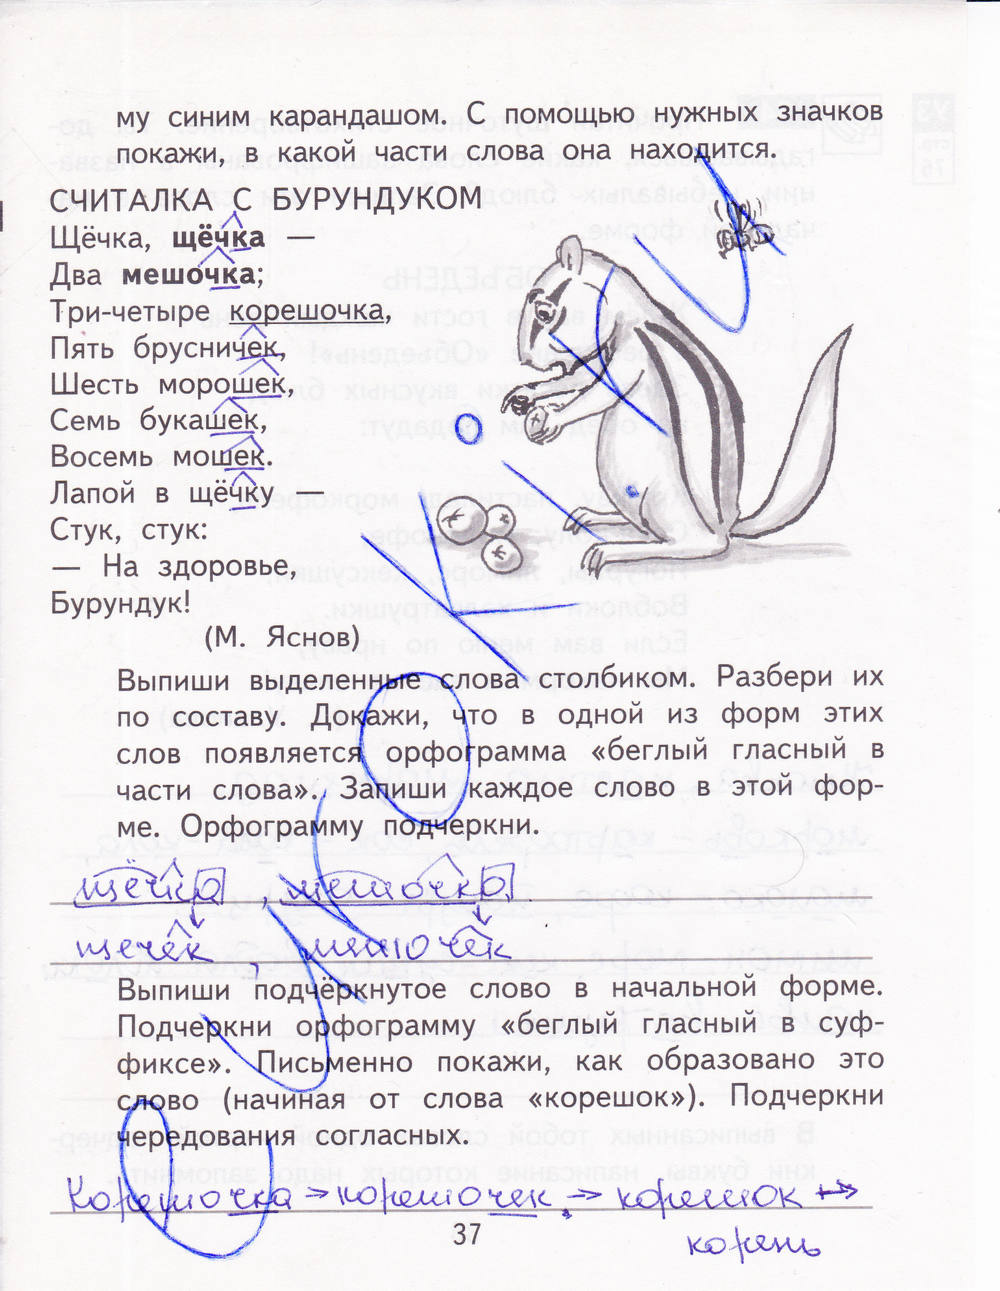 му синим карандашом. С помощью нужных значков
покажи, в какой части слова она находится.
СЧИТАЛКА С БУРУНДУКОМ
Щёчка, щёчка —
Два мешочка;
Три-четыре корешочка,
Пять брусничек,
Шесть морошек,
Семь букашек,
Восемь мошек.
Лапой в щёчку —
Стук, стук:
— На здоровье,
Бурундук!
(М. Яснов)
Выпиши выделенные слова столбиком. Разбери их
по составу. Докажи, что в одной из форм этих
слов появляется орфограмма «беглый гласный в
части слова». Запиши каждое слово в этой фор-
ме. Орфограмму подчеркни.
щёчка, мешочка
щечек, мешочек
Выпиши подчёркнутое слово в начальной форме.
Подчеркни орфограмму «беглый гласный в суф-
фиксе». Письменно покажи, как образовано это
слово (начиная от слова «корешок»). Подчеркни
чередования согласных.
Корешочка → корешочек → корешок →
37
корень